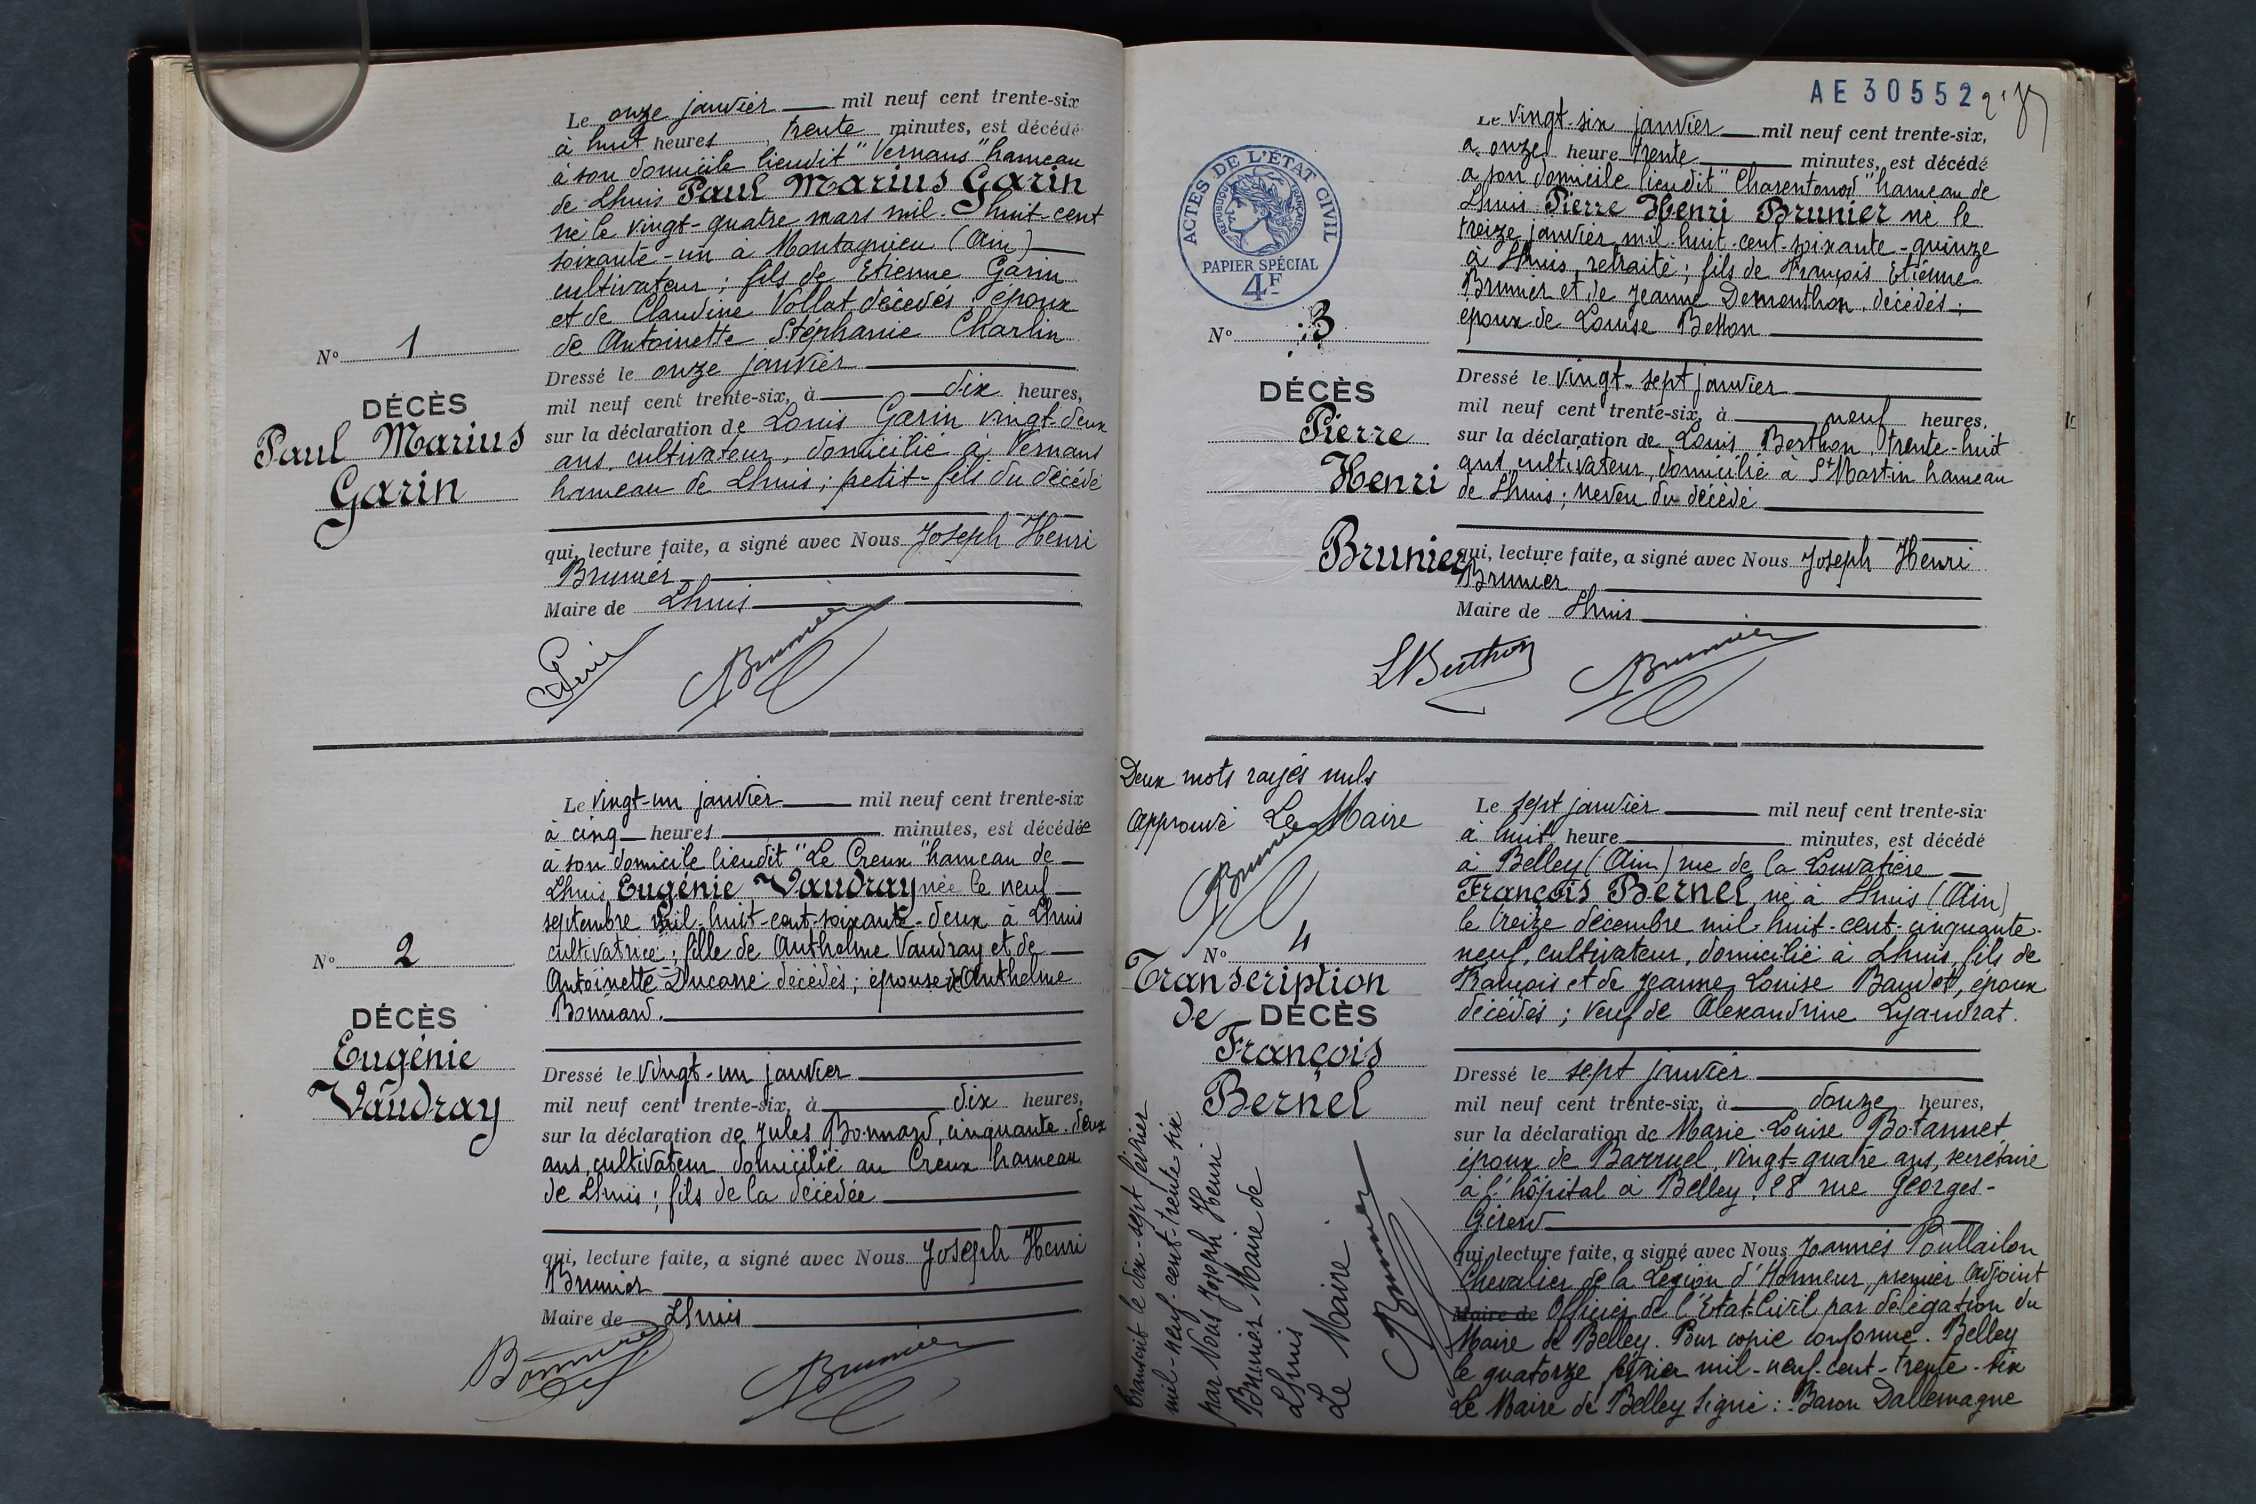 Le onze janvier mil neuf cent trente-six
à huit heures trente minutes, est décédé
à son domicile lieudit "Vernans" hameau
de Lhuis Paul Marius Garin
né le vingt-quatre mars mil-huit-cent
soixante-un à Montagnieu (Ain)
cultivateur; fils de Etienne Garin
et de Claudine Vollat décédés; époux
de Antoinette Stéphanie Charlin
N° 1
DÉCÈS
Paul Marius
Garin
Dressé le onze janvier
mil neuf cent trente-six, à dix heures,
sur la déclaration de Louis Garin vingt-deux
ans, cultivateur, domicilié à Vernans
hameau de Lhuis; petit-fils du décédé
qui, lecture faite, a signé avec Nous Joseph Henri
Brunier
Maire de Lhuis
Brunier
Le vingt-un janvier mil neuf cent trente-six
à cinq heures minutes, est décédée
à son domicile lieudit "Le Creux" hameau de
Lhuis Eugénie Vaudray née le neuf
septembre mil-huit-cent-soixante-deux à Lhuis
cultivatrice; fille de Anthelme Vaudray et de
Antoinette Ducarre décédés; épouse d'Anthelme
Bonnard.
N° 2
DÉCÈS
Eugénie
Vaudray
Dressé le vingt-un janvier
mil neuf cent trente-six, à dix heures,
sur la déclaration de Jules Bonnard, cinquante-deux
ans, cultivateur domicilié au Creux hameau
de Lhuis; fils de la décédée
qui, lecture faite, a signé avec Nous Joseph Henri
Brunier
Maire de Lhuis
Bonnard
Brunier
AE 30552
ACTES DE L'ÉTAT CIVIL
RÉPUBLIQUE FRANÇAISE
PAPIER SPÉCIAL
4F
Le vingt-six janvier mil neuf cent trente-six,
à onze heure trente minutes, est décédé
à son domicile lieudit "Charentonod" hameau de
Lhuis Pierre Henri Brunier né le
treize janvier mil-huit-cent-soixante-quinze
à Lhuis, retraité; fils de François Etienne
Brunier et de Jeanne Demonthon, décédés;
époux de Louise Betton
N° 3
DÉCÈS
Pierre
Henri
Brunier
Dressé le vingt-sept janvier
mil neuf cent trente-six, à neuf heures,
sur la déclaration de Louis Berthon, trente-huit
ans, cultivateur, domicilié à St Martin hameau
de Lhuis; neveu du décédé
qui, lecture faite, a signé avec Nous Joseph Henri
Brunier
Maire de Lhuis
L Berthon
Brunier
Deux mots rayés nuls
approuvé Le Maire
Brunier
Le sept janvier mil neuf cent trente-six
à huit heure minutes, est décédé
à Belley (Ain) rue de la Louvatière
François Bernel, né à Lhuis (Ain)
le treize décembre mil-huit-cent-cinquante-
neuf, cultivateur, domicilié à Lhuis, fils de
François et de Jeanne Louise Baudet, époux
décédés; veuf de Alexandrine Lyaudrat.
N° 4
Transcription
de DÉCÈS
François
Bernel
Dressé le sept janvier
mil neuf cent trente-six, à douze heures,
sur la déclaration de Marie-Louise Botannet
époux de Barruel, vingt-quatre ans, secrétaire
à l'hôpital à Belley, 28 rue Georges-
Girerd
qui, lecture faite, a signé avec Nous Joannès Poullailon
Chevalier de la Légion d'Honneur, premier Adjoint
Maire de Officier de l'Etat-Civil par délégation du
Maire de Belley. Pour copie conforme. Belley
le quatorze février mil-neuf-cent-trente-six
Le Maire de Belley Signé: Baron Dallemagne
Transcrit le dix-sept février
mil-neuf-cent-trente-six
par Nous Joseph Henri
Brunier Maire de
Lhuis
Le Maire
Brunier